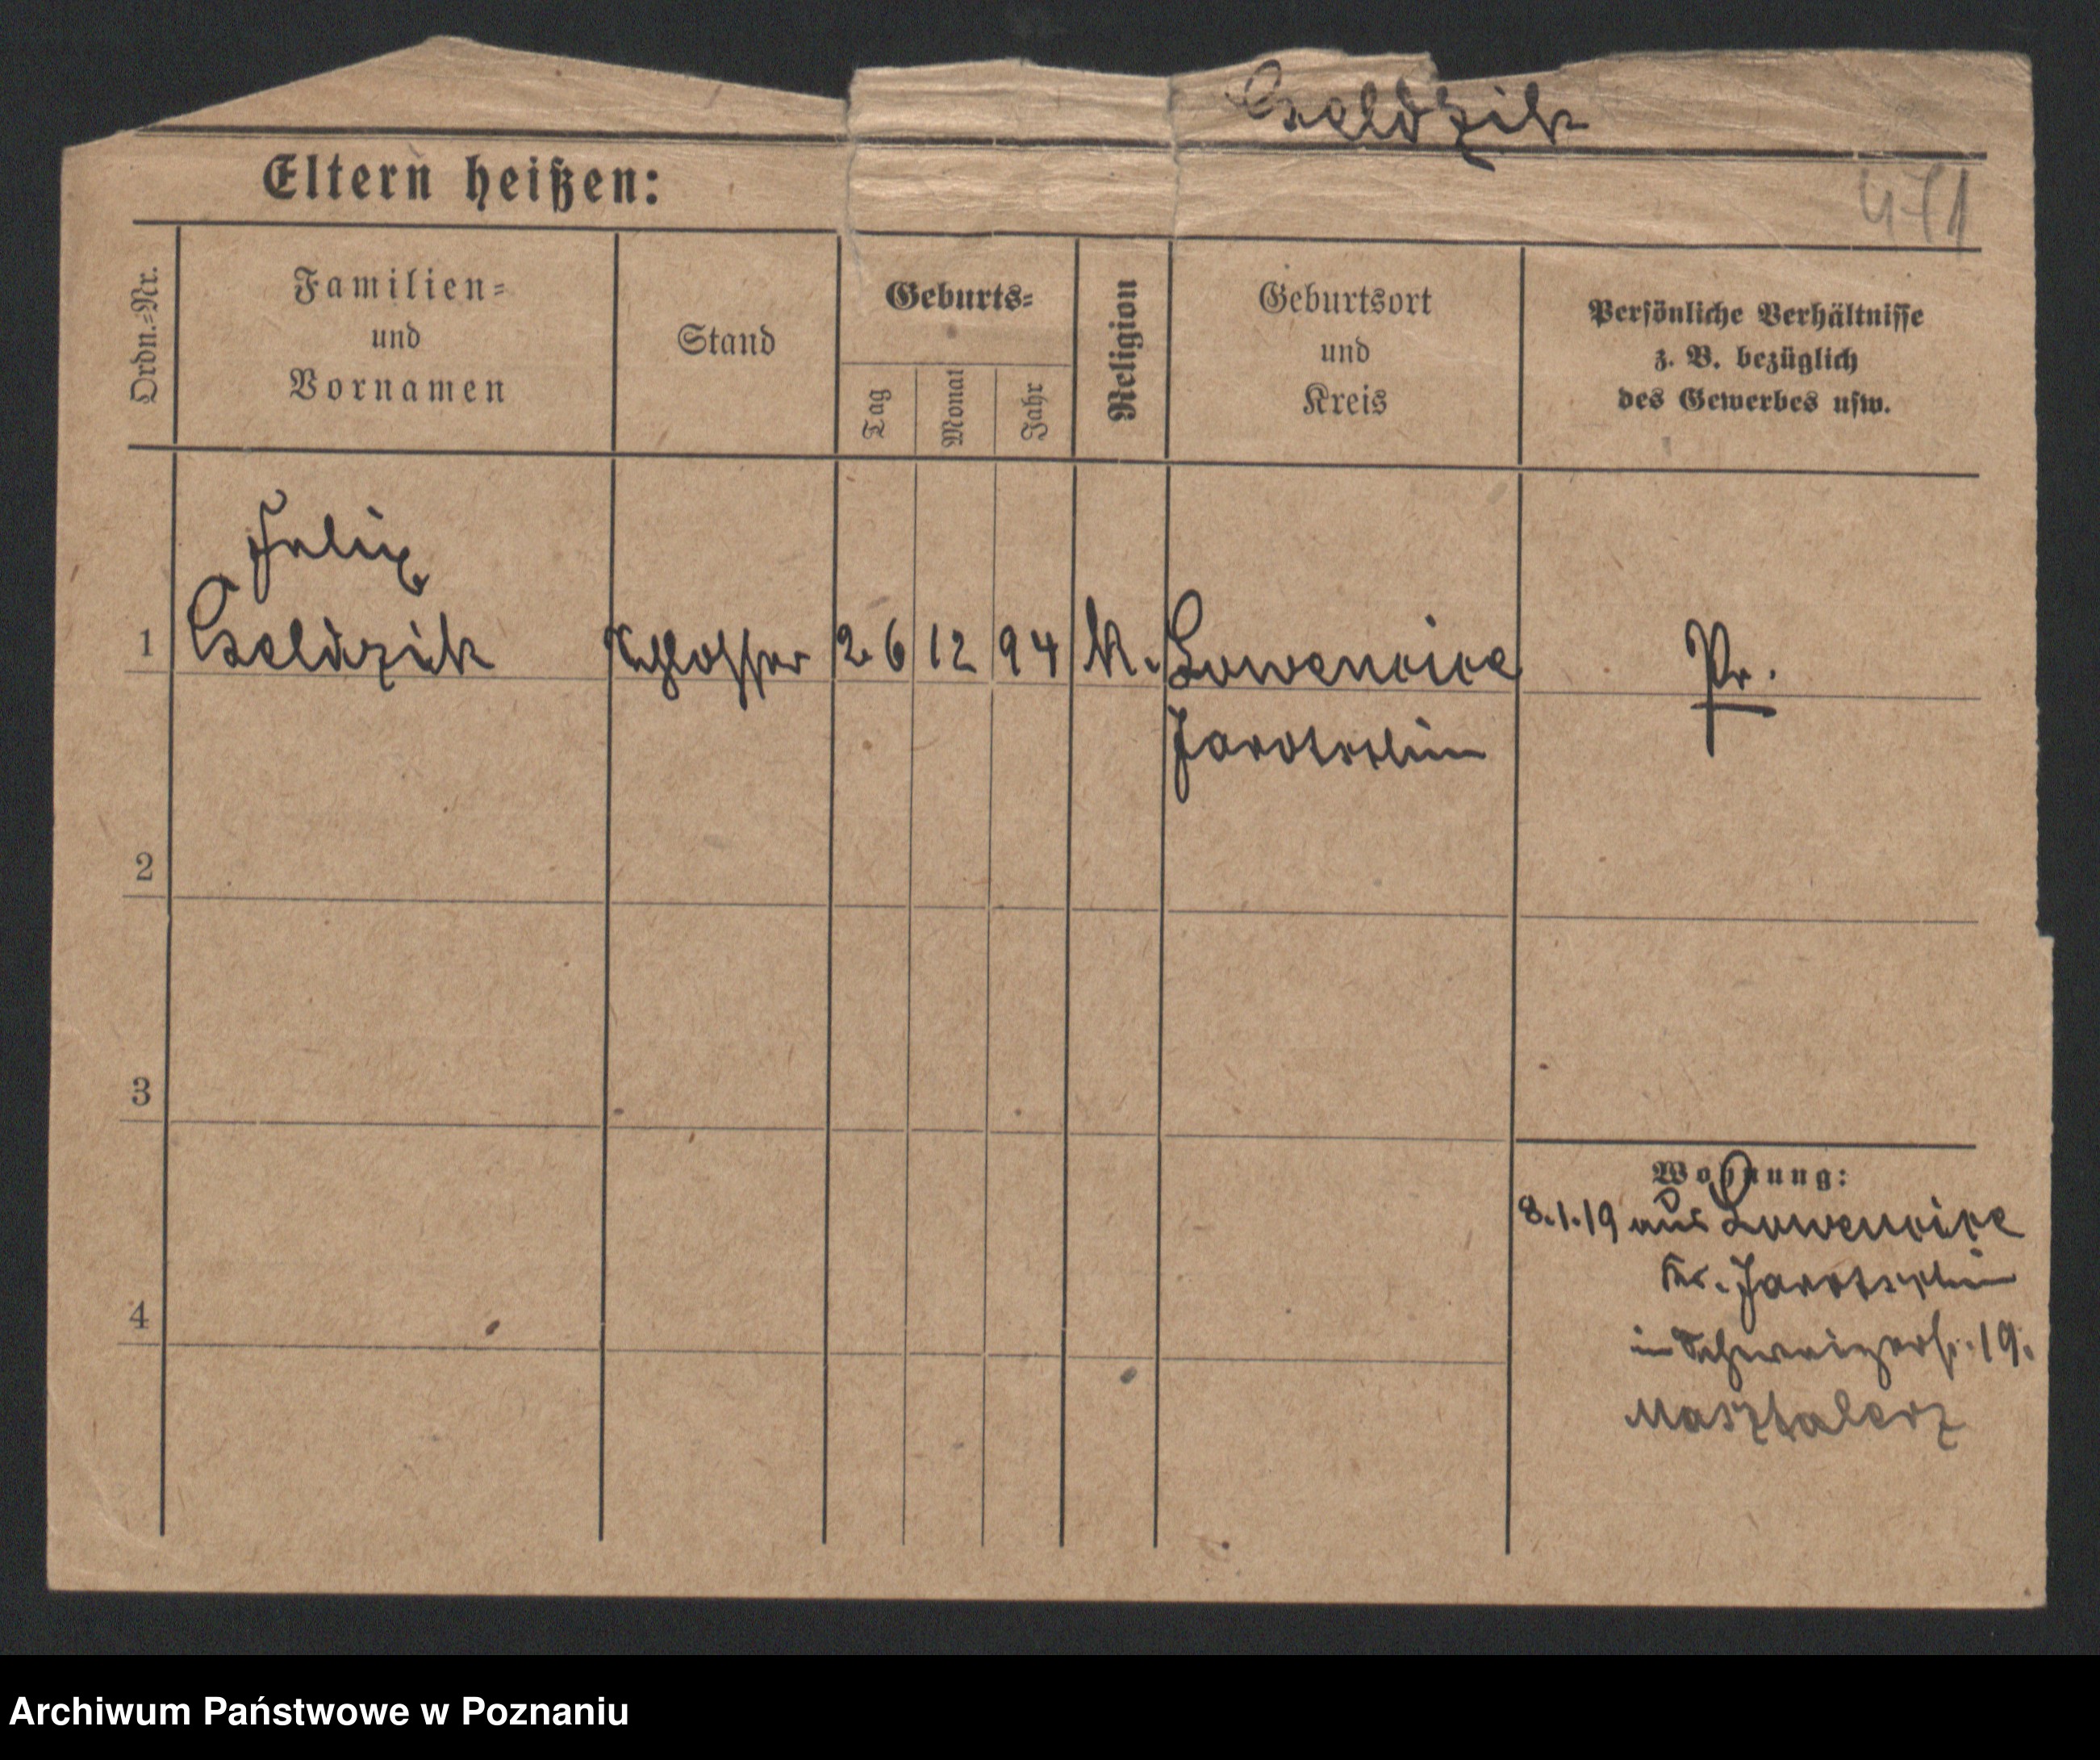 Czeldzik
Eltern heißen:
471
Ordn.=Nr.
Familien=
und
Vornamen
Stand
Geburts=
Tag
Monat
Jahr
Religion
Geburtsort
und
Kreis
Persönliche Verhältnisse
z. B. bezüglich
des Gewerbes usw.
Felix
1 Czeldzik Schlosser 26 12 94 K. Lowencice Pr.
Jarotschin
2
3
Wohnung:
8.1.19 aus Lowencice
Kr. Jarotschin
4
in Schweizerstr. 19.
Masztalerz
Archiwum Państwowe w Poznaniu